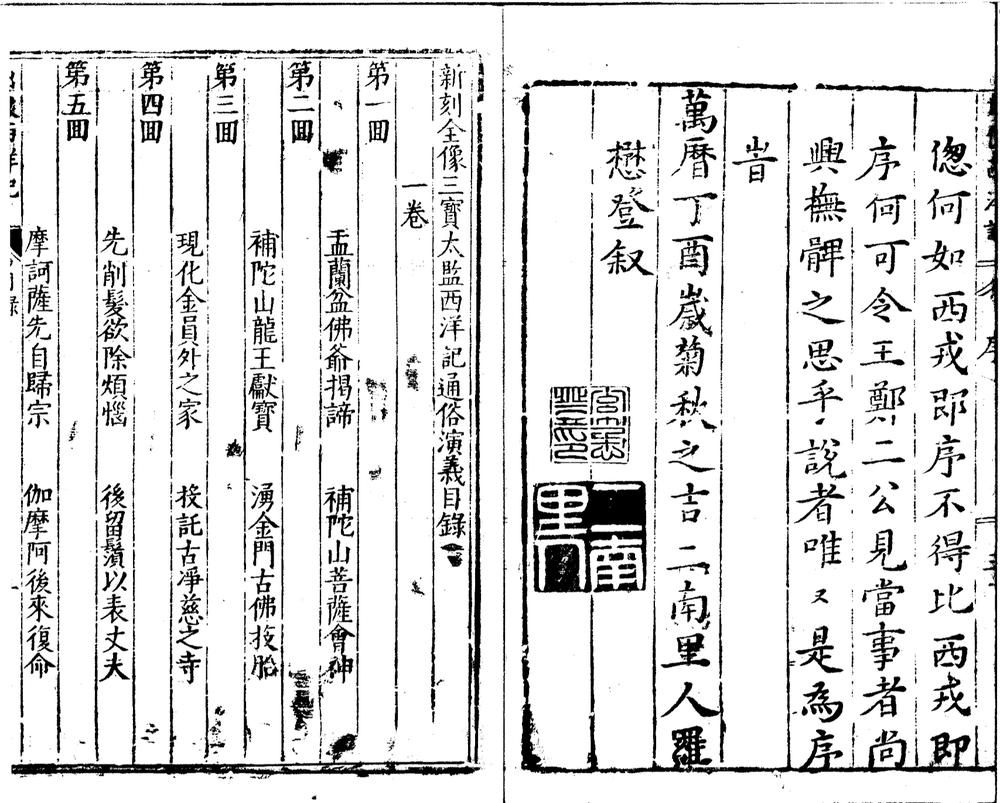 偬何如西戎即序不得比西戎即
序何可令王鄭二公見當事者尚
興撫髀之思乎說者唯又是為序
旹
萬曆丁酉歲菊秋之吉二南里人羅
懋登叙
二南里人
新刻全像三寶太監西洋記通俗演義目錄
一卷
第一囬
盂蘭盆佛爺揭諦 補陀山菩薩會神
第二囬
補陀山龍王獻寶 湧金門古佛投胎
第三囬
現化金員外之家 投託古淨慈之寺
第四囬
先削髮欲除煩惱 後留鬚以表丈夫
第五囬
摩訶薩先自歸宗 伽摩阿後來復命